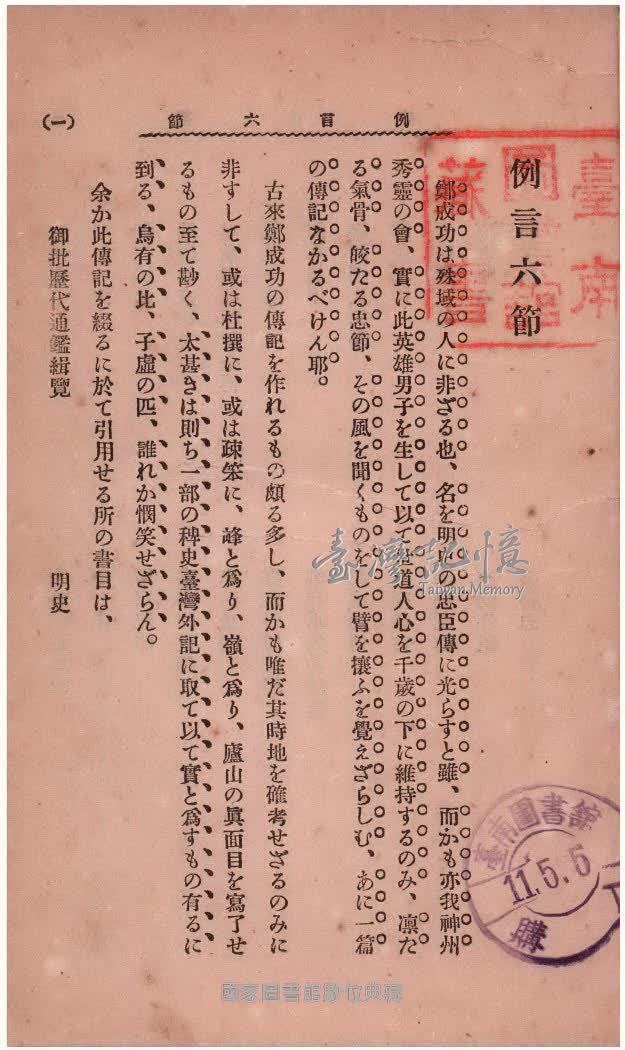 例言六節
(一)
例言六節
鄭成功は殊域の人に非ざる也、名を明だの忠臣傳に光らすと雖、而かも亦我神州
秀靈の會、實に此英雄男子を生して以て世道人心を千歳の下に維持するのみ、凛た
る氣骨、皎たる忠節、その風を聞くものをして臂を攘ふを覺ぇざらしむ、あに一篇
の傳記なかるべけん耶。
古來鄭成功の傳記を作れるもの頗る多し、而かも唯だ其時地を確考せざるのみに
非すして、或は杜撰に、或は疎笨に、峰と爲り、嶺と爲り、廬山の眞面目を寫了せ
るもの至て尠く、太甚きは則ち一部の稗史臺灣外記に取て以て實と爲すもの有るに
到る、烏有の比、子虛の匹、誰れか憫笑せざらん。
余か此傳記を綴るに於て引用せる所の書目は、
御批歷代通鑑緝覽 明史
臺南
圖書館
藏書
臺南圖書館
11.5.5
購
臺灣記憶
Taiwan Memory
國家圖書館數位典藏